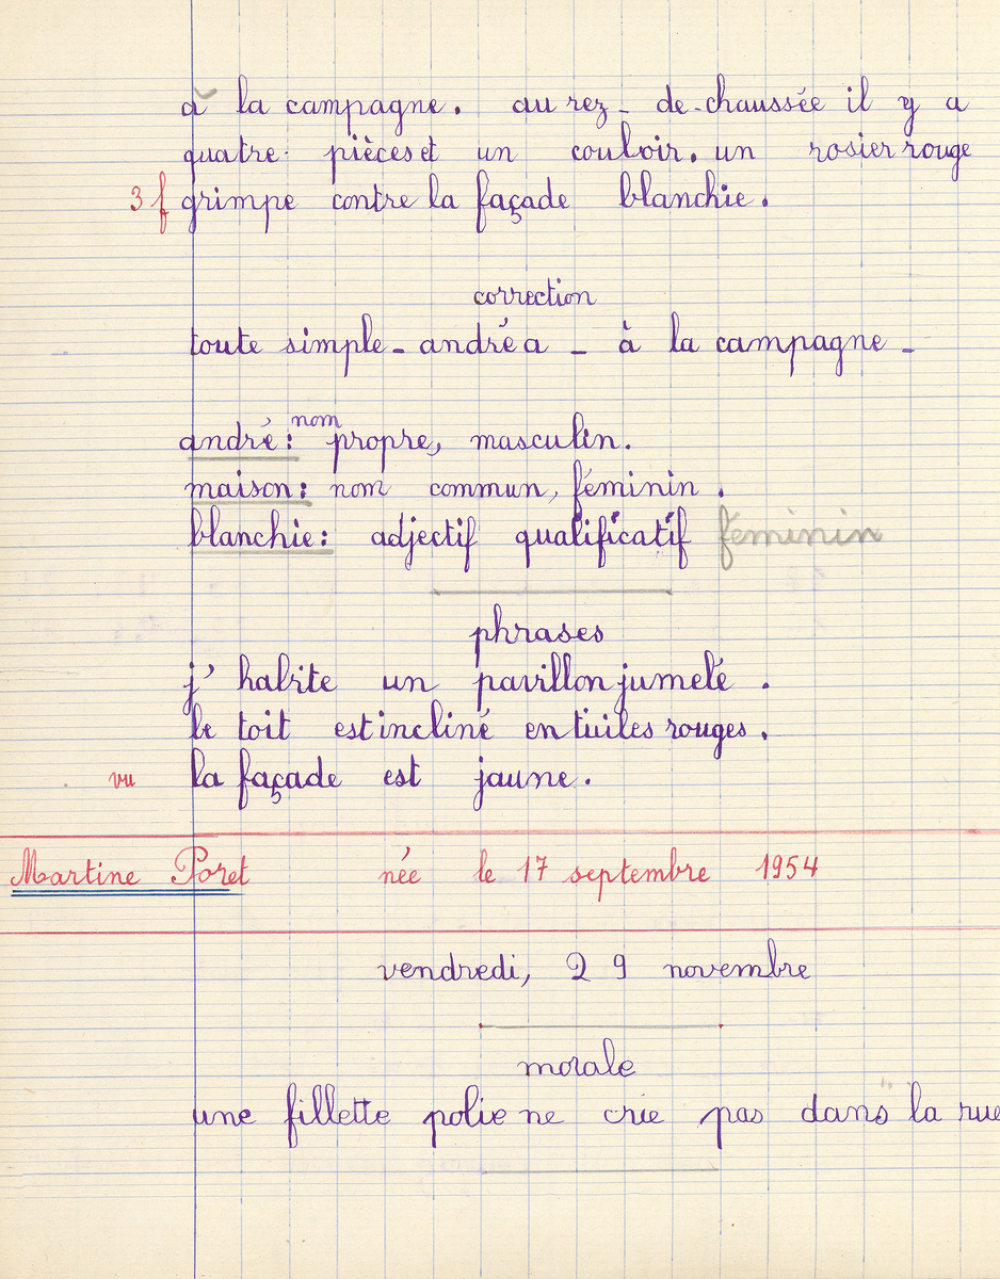 à la campagne. au rez-de-chaussée il y a
quatre pièces et un couloir. un rosier rouge
3 f grimpe contre la façade blanchie.
correction
toute simple - andré a - à la campagne -
andré : nom propre, masculin.
maison : nom commun, féminin.
blanchie : adjectif qualificatif féminin
phrases
j' habite un pavillon jumelé.
le toit est incliné en tuiles rouges.
vu la façade est jaune.
Martine Poret née le 17 septembre 1954
vendredi, 29 novembre
morale
une fillette polie ne crie pas dans la rue